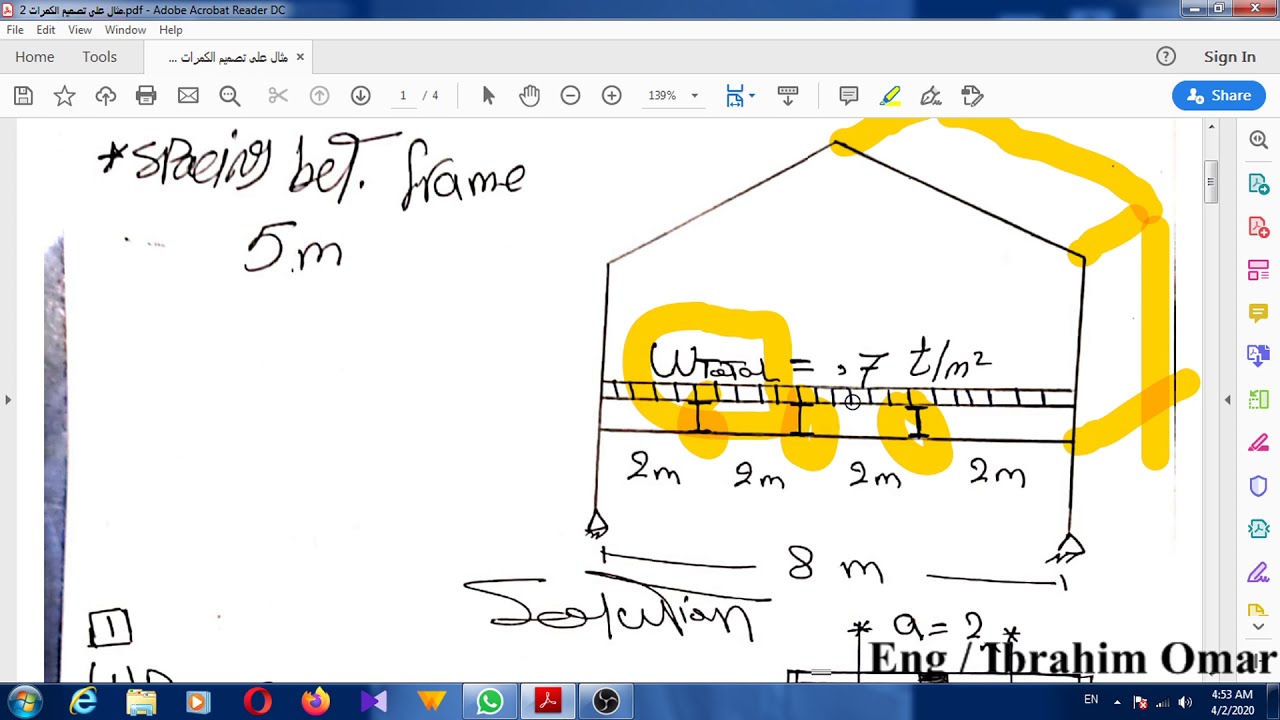 مثال على تصميم الكمرات 2.pdf - Adobe Acrobat Reader DC
File Edit View Window Help
Home Tools مثال على تصميم الكمرات ... × Sign In
1 / 4 139% Share
*Spacing bet. frame
5.m
WTotal = ,7 t/m²
2m 2m 2m 2m
8 m
Solution
1
* a = 2 *
Eng / Ibrahim Omar
EN 4:53 AM
4/2/2020